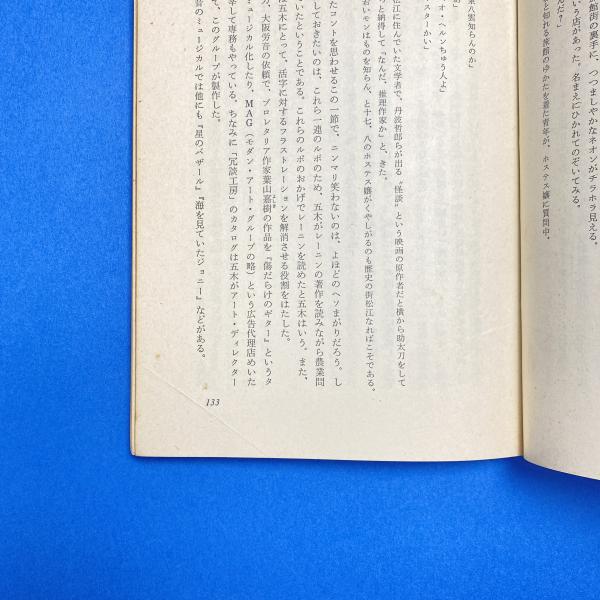 館街の裏手に、つつましやかなネオンがチラホラ見える。
いう店があった。名まえにひかれてのぞいてみる。
と知れる旅館のゆかたを着た青年が、ホステス嬢に質問中。
んだ?
泉八雲知らんのか」
オ・ヘルンちゅう人よ」
スターかい」
松江に住んでいた文学者で、丹波哲郎らが出る〝怪談〟という映画の原作者だと横から助太刀をして
らと納得して「なんだ、推理作家か」と、きた。
おいモンはものを知らん、と十七、八のホステス嬢がくやしがるのも歴史の街松江なればこそである。
たコントを思わせるこの一節で、ニンマリ笑わないのは、よほどのヘソまがりだろう。し
しておきたいのは、これら一連のルポのため、五木がレーニンの著作を読みながら農業問
いたということである。これらのルポのおかげでレーニンを読めたと五木はいう。また、
は五木にとって、活字に対するフラストレーションを解消させる役割をはたした。
方、大阪労音の依頼で、プロレタリア作家葉山嘉樹の作品を『傷だらけのギター』というタ
ミュージカル化したり、MAG(モダン・アート・グループの略)という広告代理店めいた
宰して専務もやっている。ちなみに「冗談工房」のカタログは五木がアート・ディレクター
て、このグループが製作した。
音のミュージカルでは他にも『星のバザール』『海を見ていたジョニー』などがある。
133